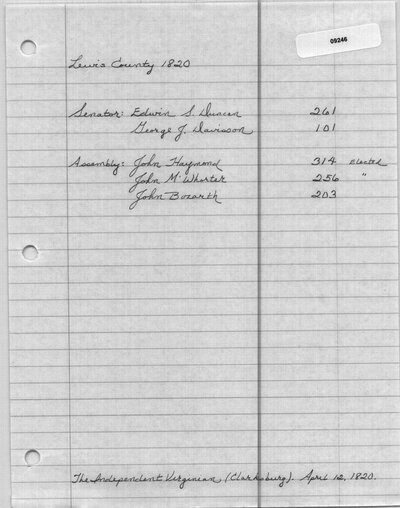 09246
Lewis County 1820
Senator: Edwin S. Duncan 261
George J. Davisson 101
Assembly: John Haymond 314 Elected
John McWhorter 256 "
John Bozarth 203
The Independent Virginian, (Clarksburg). April 12, 1820.